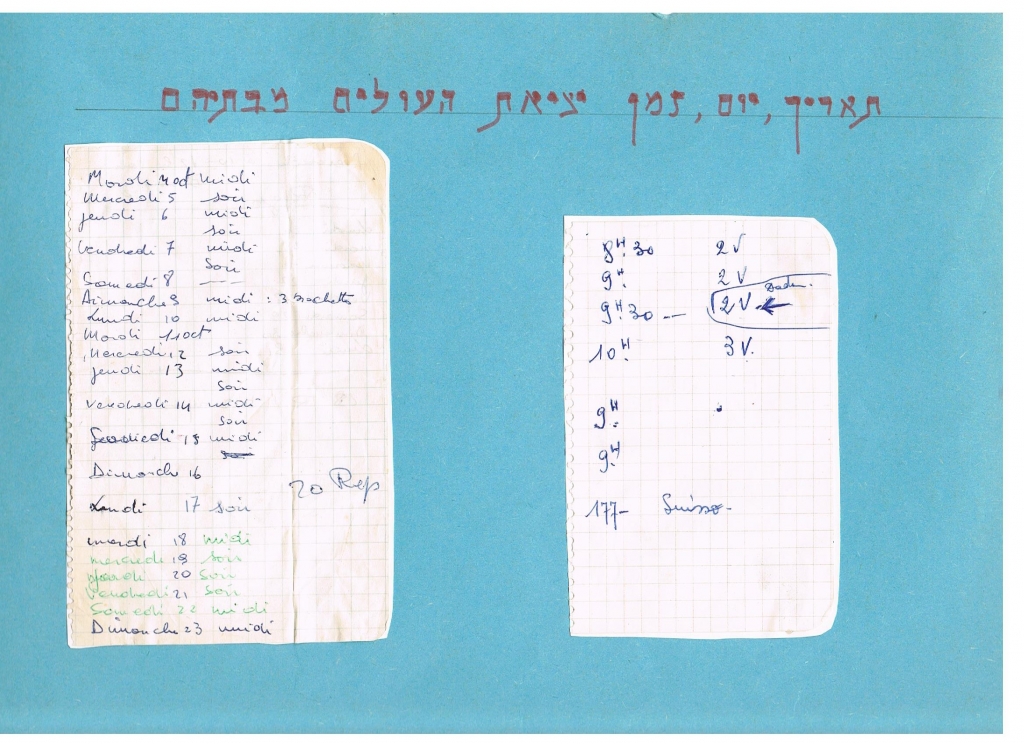 תאריך, יום, זמן יציאת העולים מבתיהם
Mardi 4 oct midi
Mercredi 5 soir
jeudi 6 midi
soir
Vendredi 7 midi
Soir
Samedi 8 ---
Dimanche 9 midi : 3 Sachets
Lundi 10 midi
Mardi 11 oct
Mercredi 12 soir
jeudi 13 midi
soir
Vendredi 14 midi
soir
15 midi
Dimanche 16
20 Rep
Lundi 17 soir
mardi 18 midi
mercredi 19 soir
20 Soir
Vendredi 21 soir
Samedi 22 midi
Dimanche 23 midi
8H 30 2V
9H 2V
9H 30 -- 2V ←
10H 3V.
9H
9H
177- Suisse-